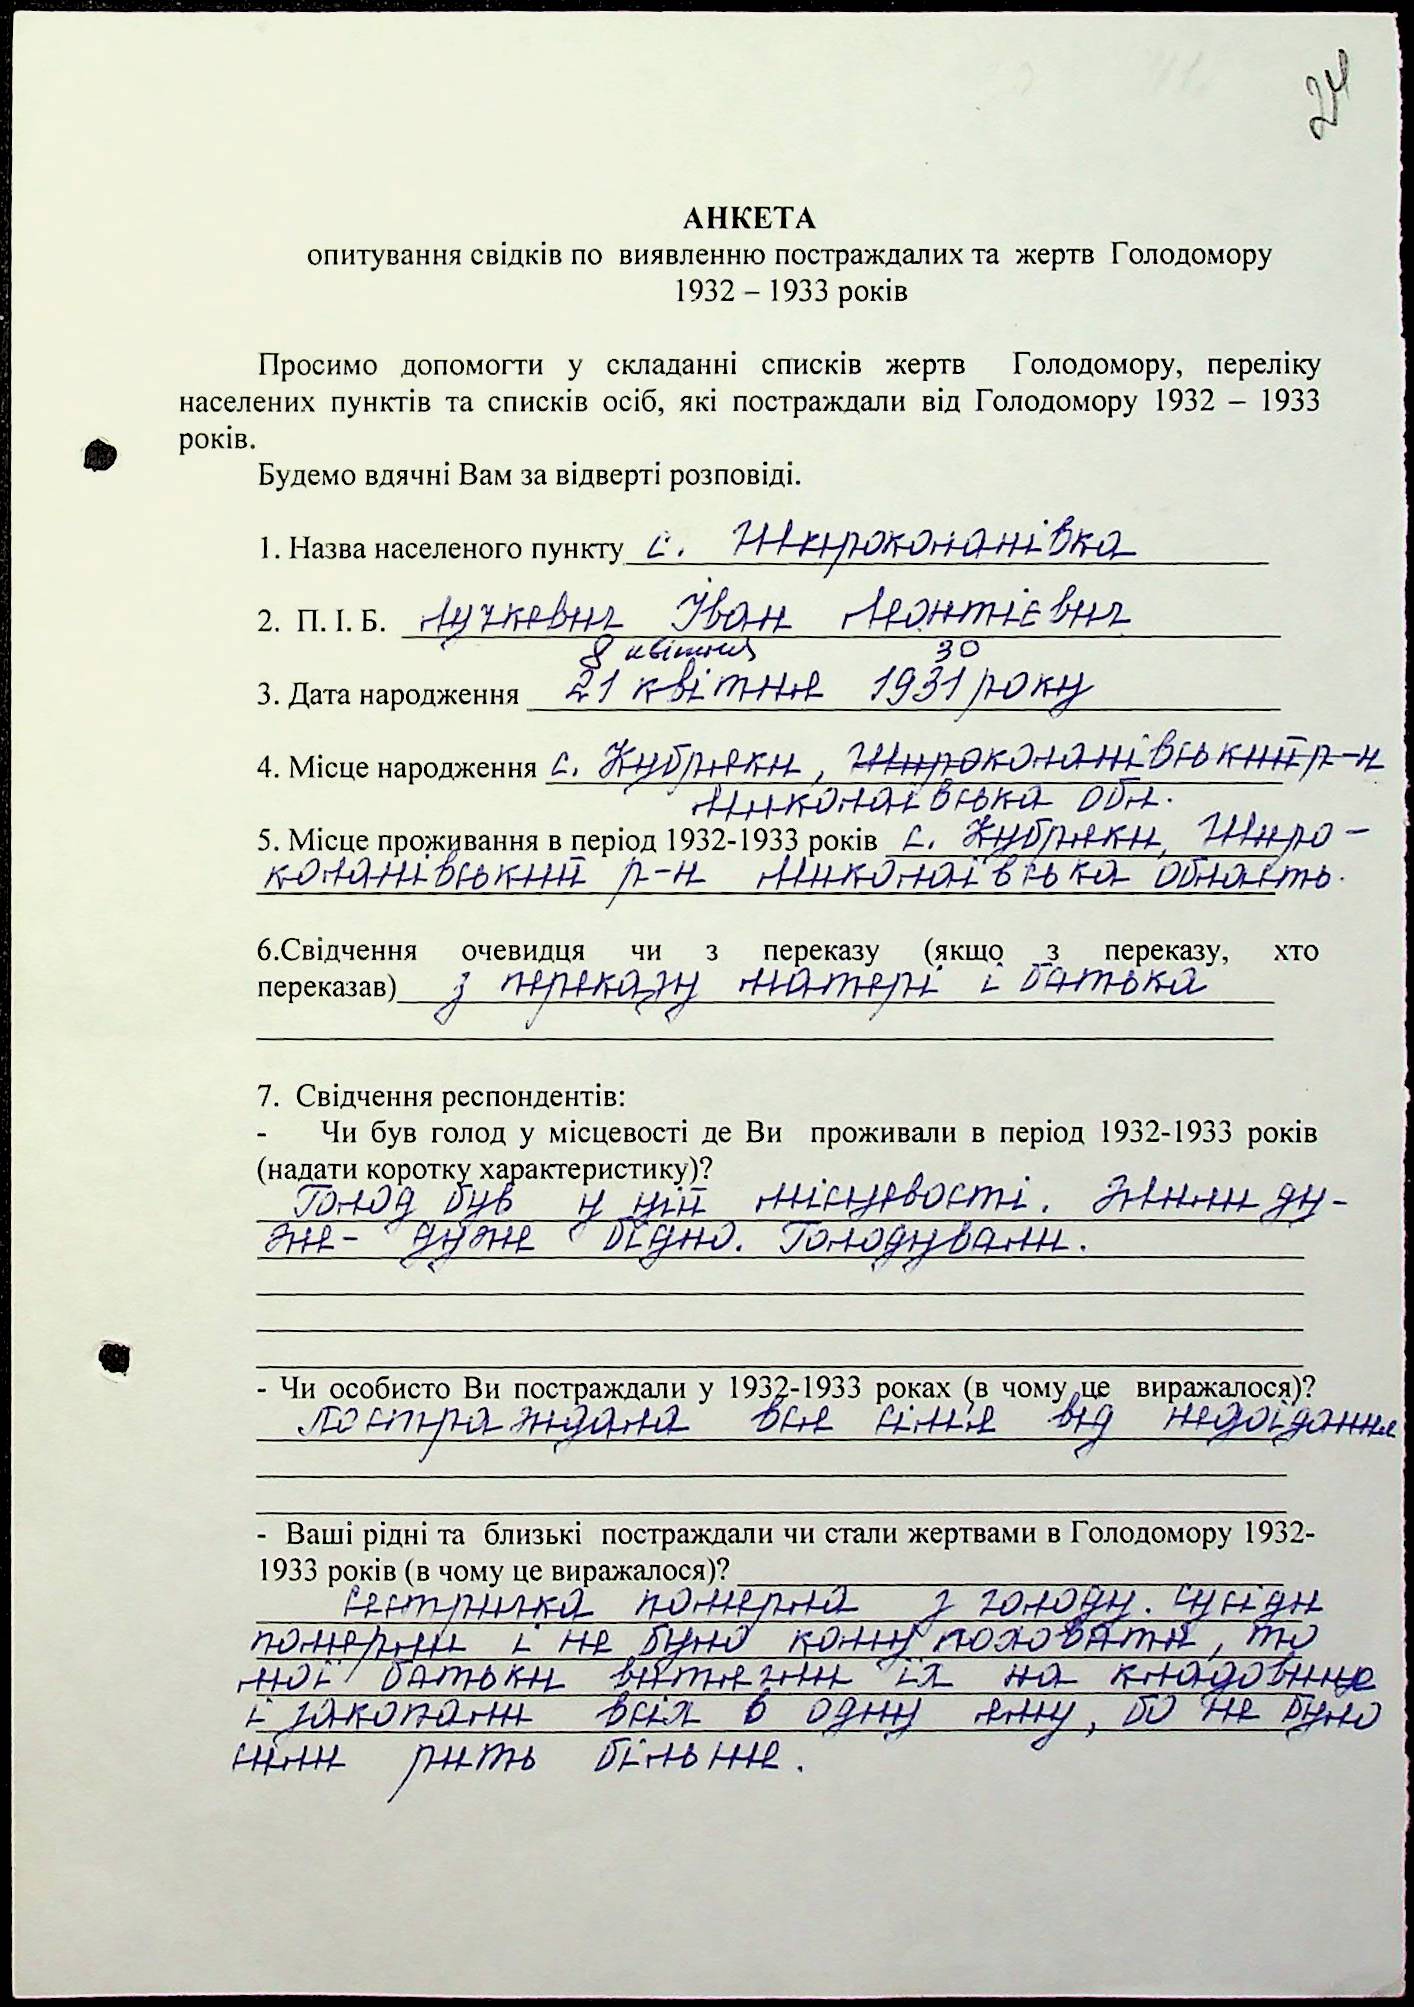 24
АНКЕТА
опитування свідків по виявленню постраждалих та жертв Голодомору
1932 – 1933 років
Просимо допомогти у складанні списків жертв Голодомору, переліку
населених пунктів та списків осіб, які постраждали від Голодомору 1932 – 1933
років.
Будемо вдячні Вам за відверті розповіді.
1. Назва населеного пункту с. Широколанівка
2. П. І. Б. Лучкевич Іван Леонтієвич
8 квітня 30
3. Дата народження 21 квітня 1931 року
4. Місце народження с. Кубряки, Широколанівський р-н
Миколаївська обл.
5. Місце проживання в період 1932-1933 років с. Кубряки, Широ-
коланівський р-н Миколаївська область.
6.Свідчення очевидця чи з переказу (якщо з переказу, хто
переказав) з переказу матері і батька
7. Свідчення респондентів:
- Чи був голод у місцевості де Ви проживали в період 1932-1933 років
(надати коротку характеристику)?
Голод був у цій місцевості. Жили ду-
же- дуже бідно. Голодували.
- Чи особисто Ви постраждали у 1932-1933 роках (в чому це виражалося)?
Постраждала вся сім'я від недоїдання
- Ваші рідні та близькі постраждали чи стали жертвами в Голодомору 1932-
1933 років (в чому це виражалося)?
Сестричка померла з голоду. Сусіди
померли і не було кому поховати, то
мої батьки витягли їх на кладовище
і закопали всіх в одну яму, бо не було
сили рить більше.